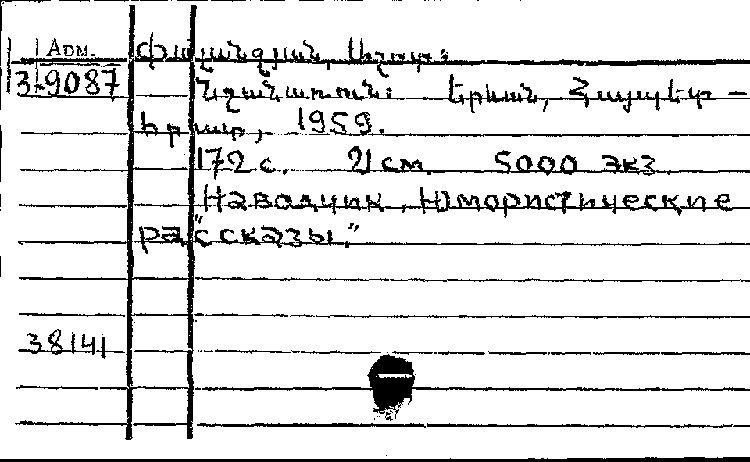 Арм.
3-9087
Փափազյան, Աշոտ:
Նշանառուն: Երևան, Հայպետ-
հրատ, 1959.
172 с. 21 см. 5000 экз.
"Наводчик. Юмористические
рассказы."
38141